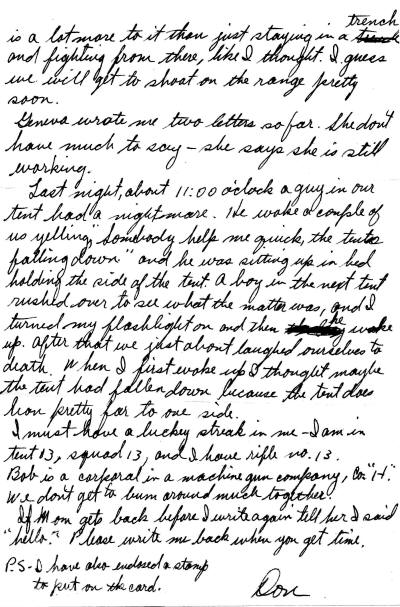 trench
is a lot more to it than just staying in a
and fighting from there, like I thought. I guess
we will get to shoot on the range pretty
soon.
Geneva wrote me two letters so far. She don't
have much to say - she says she is still
working.
Last night, about 11:00 o'clock a guy in our
tent had a nightmare. He woke a couple of
us yelling, "Somebody help me quick, the tents
falling down" and he was sitting up in bed
holding the side of the tent. A boy in the next tent
rushed over to see what the matter was, and I
turned my flashlight on and then he woke
up. After that we just about laughed ourselves to
death. When I first woke up I thought maybe
the tent had fallen down because the tent does
lean pretty far to one side.
I must have a luckey streak in me - I am in
tent 13, squad 13, and I have rifle no. 13.
Bob is a corporal in a machine gun company, Co. "H".
We don't get to bum around much together.
If Mom gets back before I write again tell her I said
"hello." Please write me back when you get time.
P.S - I have also enclosed a stamp
to put on the card.
Don